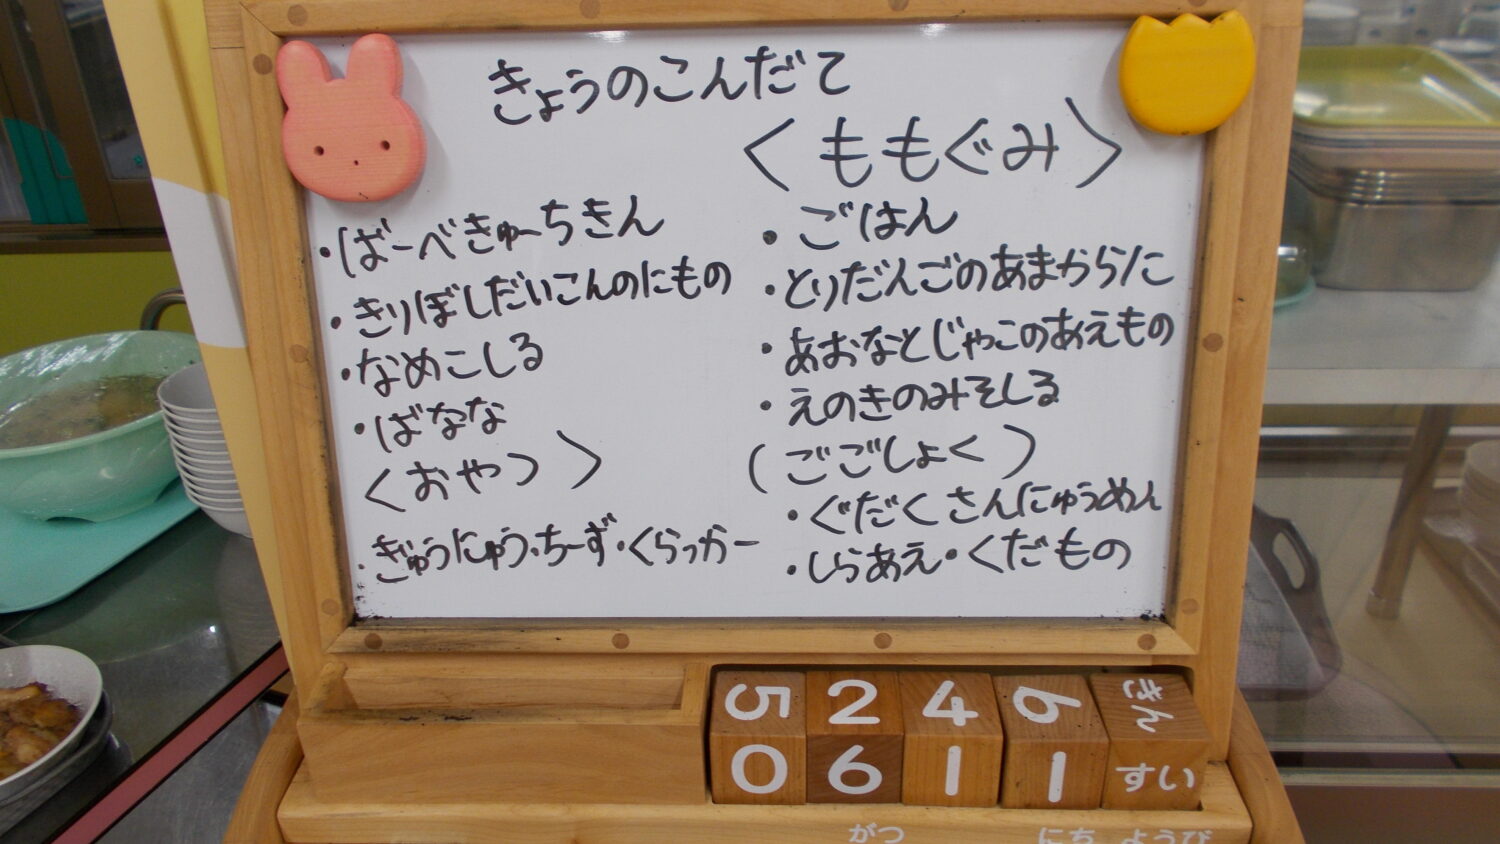 きょうのこんだて
・ばーべきゅーちきん
・きりぼしだいこんのにもの
・なめこしる
・ばなな
〈おやつ〉
・ぎゅうにゅう・ちーず・くらっかー
〈ももぐみ〉
・ごはん
・とりだんごのあまからに
・あおなとじゃこのあえもの
・えのきのみそしる
(ごごしょく)
・ぐだくさんにゅうめん
・しらあえ・くだもの
5 2 4 9 きん
0 6 1 1 すい
がつ にち ようび